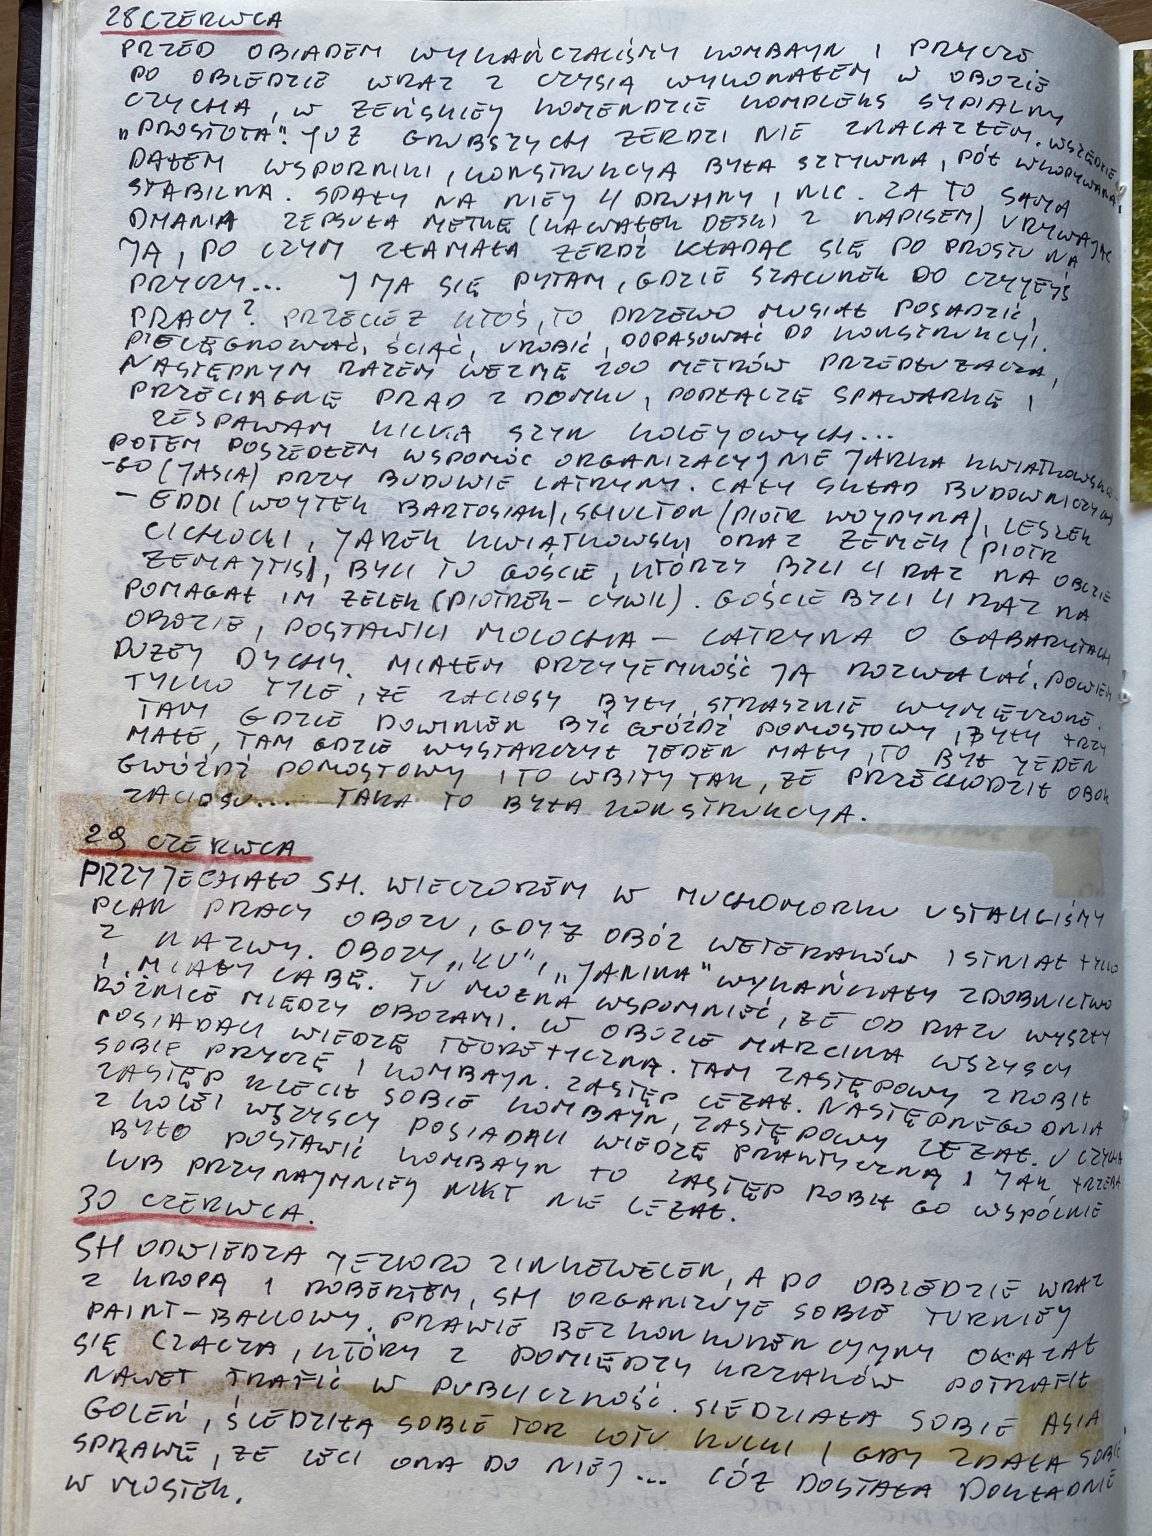 28 CZERWCA
PRZED OBIADEM WYKAŃCZALIŚMY KOMBAYN I PRYCZE
PO OBIEDZIE WRAZ Z CZYSIĄ WYKONAŁEM W OBOZIE
CZYCHA, W ŻEŃSKIEY KOMENDZIE KOMPLEKS SYPIALNY
"PROSTOTA". JUŻ GRUBSZYCH ŻERDZI NIE ZNALAZŁEM. WSZĘDZIE
DAŁEM WSPORNIKI, KONSTRUKCYA BYŁA SZTYWNA, PÓŁ WKOPYWANA,
STABILNA. SPAŁY NA NIEY 4 DRUHNY I NIC. ZA TO SAMA
DMANIA ZEPSUŁA METKĘ (KAWAŁEK DESKI Z NAPISEM) URYWAJĄC
JĄ, PO CZYM ZŁAMAŁA ŻERDŹ KŁADĄC SIĘ PO PROSTU NA
PRYCZY... I JA SIĘ PYTAM, GDZIE SZACUNEK DO CZYJEJŚ
PRACY? PRZECIEŻ KTOŚ, TO DRZEWO MUSIAŁ POSADZIĆ,
PIELĘGNOWAĆ, ŚCIĄĆ, UROBIĆ, DOPASOWAĆ DO KONSTRUKCYI.
NASTĘPNYM RAZEM WEZMĘ 200 METRÓW PRZEDŁUŻACZA,
PRZECIĄGNĘ PRĄD Z DOMKU, PODŁĄCZĘ SPAWARKĘ I
ZESPAWAM KILKA SZYN KOLEYOWYCH...
POTEM POSZEDŁEM WSPOMÓC ORGANIZACYJNIE JARKA KWIATKOWSKIE-
-GO (JASIA) PRZY BUDOWIE LATRYNY. CAŁY SKŁAD BUDOWNICZYCH
- EDDI (WOYTEK BARTOSIAK), SKULTON (PIOTR WOYDYNA), LESZEK
CICHOCKI, JAREK KWIATKOWSKI ORAZ ZEMEK (PIOTR
ZEMAJTIS), BYLI TO GOŚCIE, KTÓRZY BYLI 4 RAZ NA OBOZIE
POMAGAŁ IM ZELEK (PIOTREK - CYWIL). GOŚCIE BYLI 4 RAZ NA
OBOZIE, POSTAWILI MOLOCHA - LATRYNA O GABARYTACH
DUŻEY DYCHY. MIAŁEM PRZYJEMNOŚĆ JĄ ROZWALAĆ. POWIEM
TYLKO TYLE, ŻE ZACIOSY BYŁY STRASZNIE WYMĘCZONE.
TAM GDZIE POWINIEN BYĆ GWÓŹDŹ POMOSTOWY, BYŁY TRZY
MAŁE, TAM GDZIE WYSTARCZYŁ JEDEN MAŁY, TO BYŁ JEDEN
GWÓŹDŹ POMOSTOWY I TO WBITY TAK, ŻE PRZECHODZIŁ OBOK
ZACIOSU... TAKA TO BYŁA KONSTRUKCYA.
29 CZERWCA
PRZYJECHAŁO SH. WIECZOREM W MUCHOMORKU USTALILIŚMY
PLAN PRACY OBOZU, GDYŻ OBÓZ WETERANÓW ISTNIAŁ TYLKO
Z NAZWY. OBOZY "KU", "JANINA" WYKAŃCZAŁY ZDOBNICTWO
I MIAŁY LABĘ. TU MOŻNA WSPOMNIEĆ, ŻE OD RAZU WYSZŁY
RÓŻNICE MIĘDZY OBOZAMI. W OBOZIE MARCINA WSZYSCY
POSIADALI WIEDZĘ TEORETYCZNĄ. TAM ZASTĘPOWY ZROBIŁ
SOBIE PRYCZĘ I KOMBAYN. ZASTĘP LEŻAŁ. NASTĘPNEGO DNIA
ZASTĘP KLECIŁ SOBIE KOMBAYN, ZASTĘPOWY LEŻAŁ. U CZYCHA
Z KOLEI WSZYSCY POSIADALI WIEDZĘ PRAKTYCZNĄ I JAK TRZEBA
BYŁO POSTAWIĆ KOMBAYN TO ZASTĘP ROBIŁ GO WSPÓLNIE
LUB PRZYNAJMNIEJ NIKT NIE LEŻAŁ.
30 CZERWCA.
SH ODWIEDZA JEZIORO ZINKEWELEN, A PO OBIEDZIE WRAZ
Z KROPĄ I ROBERTEM, SH ORGANIZUJE SOBIE TURNIEY
PAINT-BALLOWY. PRAWIE BEZKONKURENCYJNY OKAZAŁ
SIĘ CZACZA, KTÓRY Z POMIĘDZY KRZAKÓW POTRAFIŁ
NAWET TRAFIĆ W PUBLICZNOŚĆ. SIEDZIAŁA SOBIE ASIA
GOLEŃ, ŚLEDZIŁA SOBIE TOR LOTU KULKI I GDY ZDAŁA SOBIE
SPRAWĘ, ŻE LECI ONA DO NIEJ... CÓŻ DOSTAŁA DOKŁADNIE
W MOSTEK.